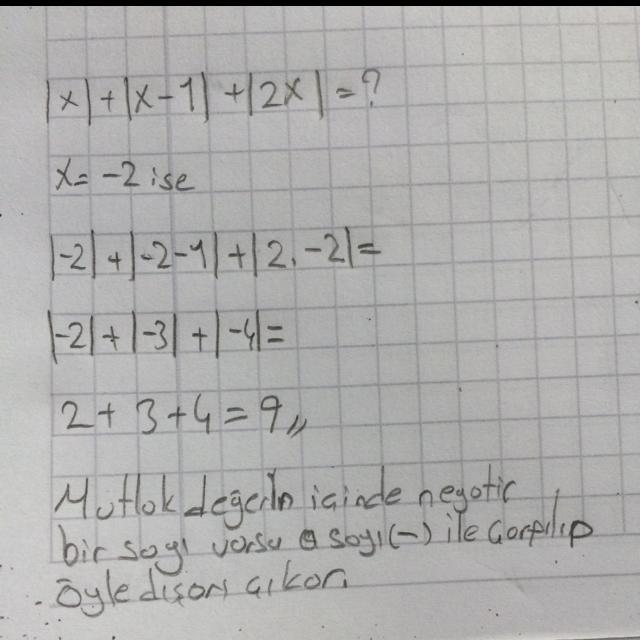 |x| + |x-1| + |2x| = ?
x = -2 ise
|-2| + |-2-1| + |2.-2| =
|-2| + |-3| + |-4| =
2 + 3 + 4 = 9,,
Mutlak değerin içinde negatif
bir sayı varsa o sayı (-) ile çarpılıp
öyle dışarı çıkar.